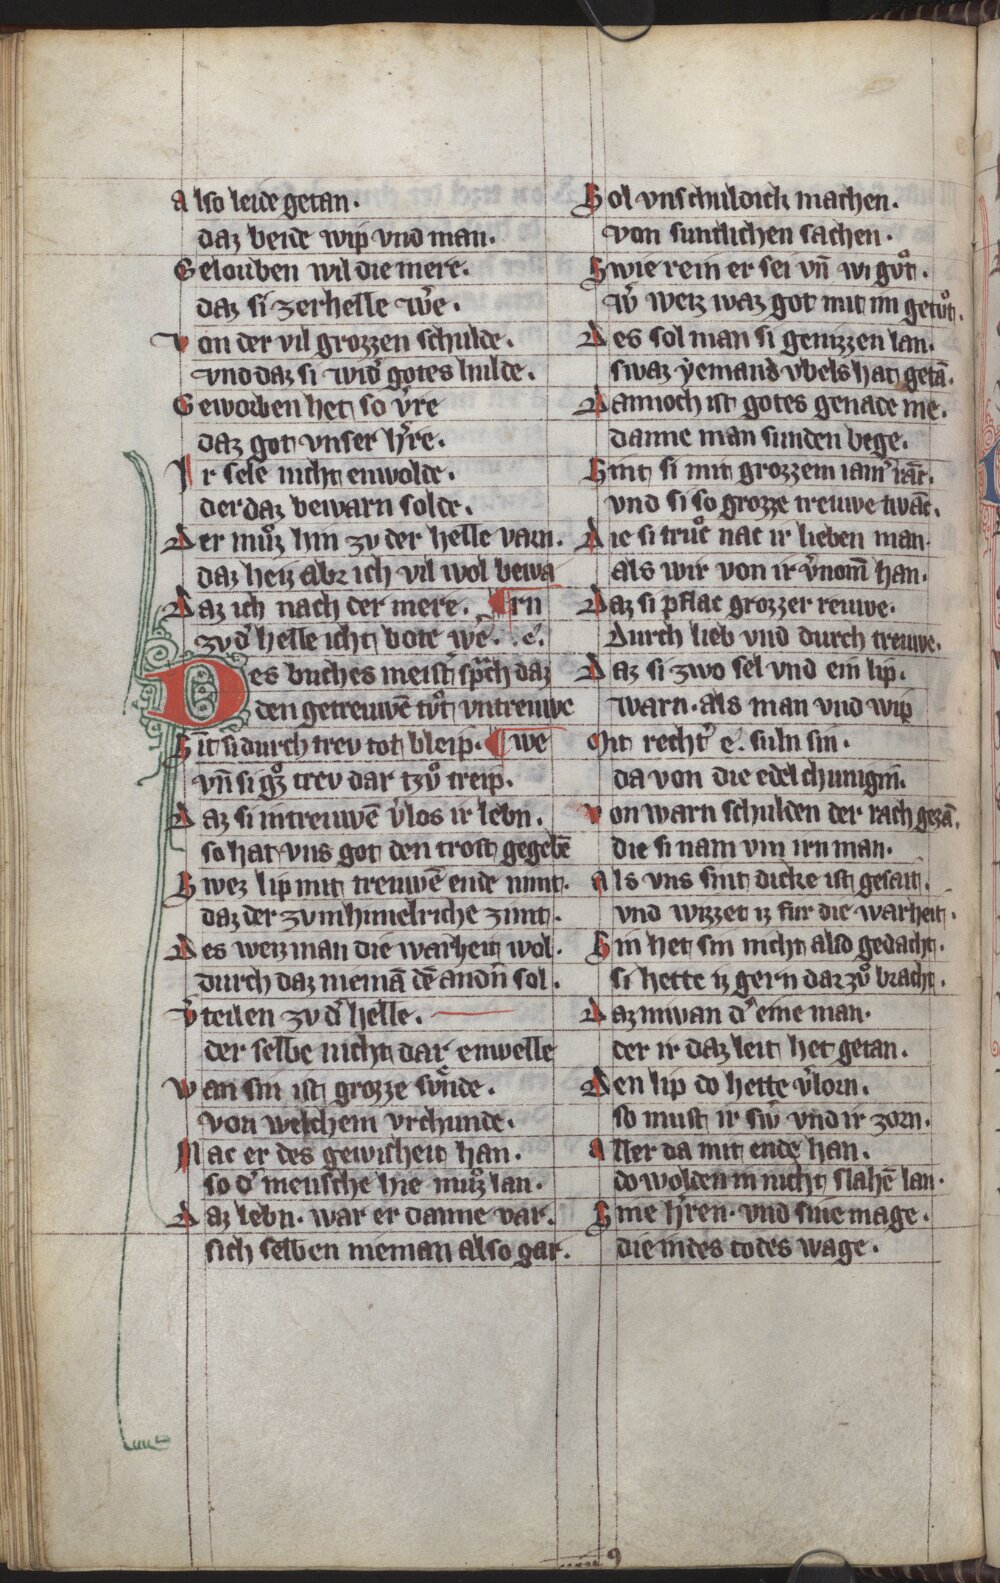 Also leide getan.
daz beide wip vnd man.
Gelouben wil die mere.
daz si zer helle w̾e.
Von der vil grozzen schulde.
vnd daz si wid̾ gotes hulde.
Geworben het so v̾re
daz got vnser h̾re.
Ir sele nicht enwolde.
der daz bewarn solde.
Der muͦz hin zv der helle varn.
daz heiz aber ich vil wol bewa
Daz ich nach der mere. ¶rn
zv d̾ helle icht bote w̾e. e.
Des buches meist̾ sp̾ch daz
den getreuwē tuͦt vntreuwe
Sit si durch trev tot bleip. ¶we
vn̄ si gͦz trev dar tzuͦ treip.
Daz si in treuwē v̾los ir lebn.
so hat vns got den trost gegebē
Swez lip mit treuwē ende nimt.
daz der zvm himelriche zimt.
Des weiz man die warheit wol.
durch daz niemā dē andn̄ sol.
V̾teilen zv d̾ helle.
der selbe nicht dar enwelle
Wan sin ist grozze suͤnde.
von welchem vrchunde.
Mac er des gewisheit han.
so d̾ mensche hie muͦz lan.
Daz lebn. war er danne var.
sich selben nieman also gar.
Sol vnschuldick machen.
von suntlichen sachen.
Swie rein er sei vn̄ wi guͦt.
w̾ weiz waz got mit im getuͦt.
Des sol man si genizzen lan.
swaz yemand vbels hat getā.
Dannoch ist gotes genade me.
danne man sunden bege.
Sint si mit grozzem iam̾ rāt.
vnd si so grozze treuwe twāc.
Die si truͦc nac ir lieben man.
als wir von ir v̾nom̄ han.
Daz si pflac grozzer reuwe.
Durch lieb vnd durch treuwe.
Daz si zwo sel vnd ein lip.
warn. als man vnd wip
Mit recht̾ e. suln sin.
da von die edel chunigin.
Von warn schulden der rach gezā.
die si nam vm irn man.
Als vns sint dicke ist gesait.
vnd wizzet iz fur die warheit.
Sin het sin nicht also gedacht.
si hette iz gern dar zuͦ bracht.
Daz niwan d̾ eine man.
der ir daz leit het getan.
Den lip do hette v̾lorn.
so must ir sw̾ vnd ir zorn.
Aller da mit ende han.
do wolden in nicht slahē lan.
Sine h̾ren. vnd sine mage.
die in des todes wage.